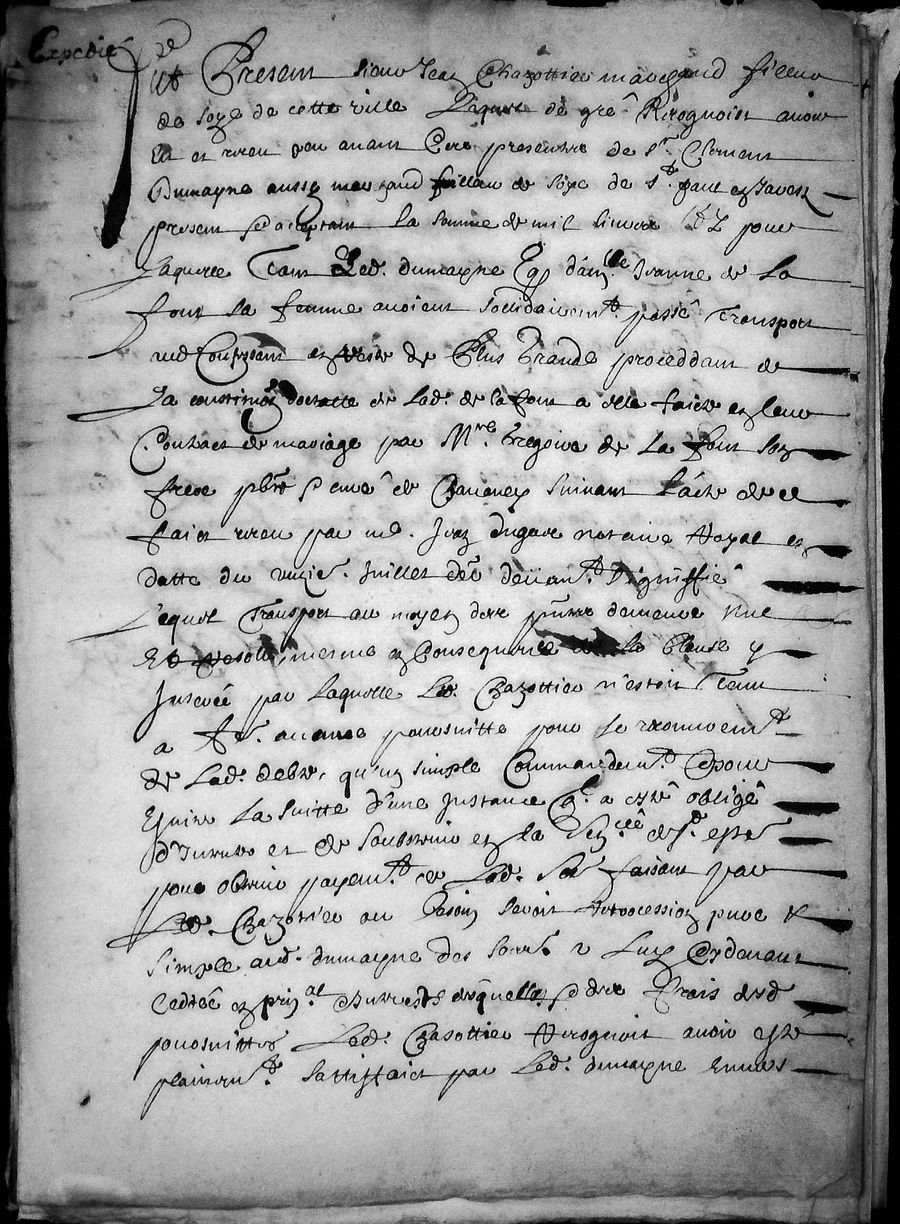 Expedié
fut Present sieur Jean Chazottier marchand filleur
de soye de cette ville Lequel de gré Recognoist avoir
eu et receu peu avant Ces presentes de sr Clement
Dumayne aussy marchand de soye de St paul en
present & acceptant la somme de mil livres pour
Laquelle Led. dumayne Et dam.lle Jeanne de La
font sa femme avoient sollidairemt passé Transport
aud Confessant en reste de Plus Grande proceddant de
La constitution dotralle de Lad. de lafont a elle faicte en leur
Contract de mariage par Mre Gregoire de La font son
frere pbre & curé de suivant l'acte de ce
faict receu par me. notaire Royal en
datte du Juillet der devant signiffié
Lequel Transport au moyen des pntes demeure nul
Et Resolu mesme en Consequence de la Clause y
Inserée par laquelle Led. Chazottier n'estoit Tenu
a fe. aucune poursuitte pour le recouvremt
de Lad. debte, qu'un simple Commandemt Et pour
Euiter La suitte d'une Instance qu'il a esté obligé
d'Intenter et de soubstenir en la
pour obtenir payemt de Lad. faisant par
Led. Chazottier au besoin Retrocession pure &
simple aud. dumayne des Cydevant
Cedée en prin.al Interests desquelles & des frais desd
poursuittes Led. Chazottier Recognoit avoir esté
plainemt sattisfaict par Led. dumayne Envers